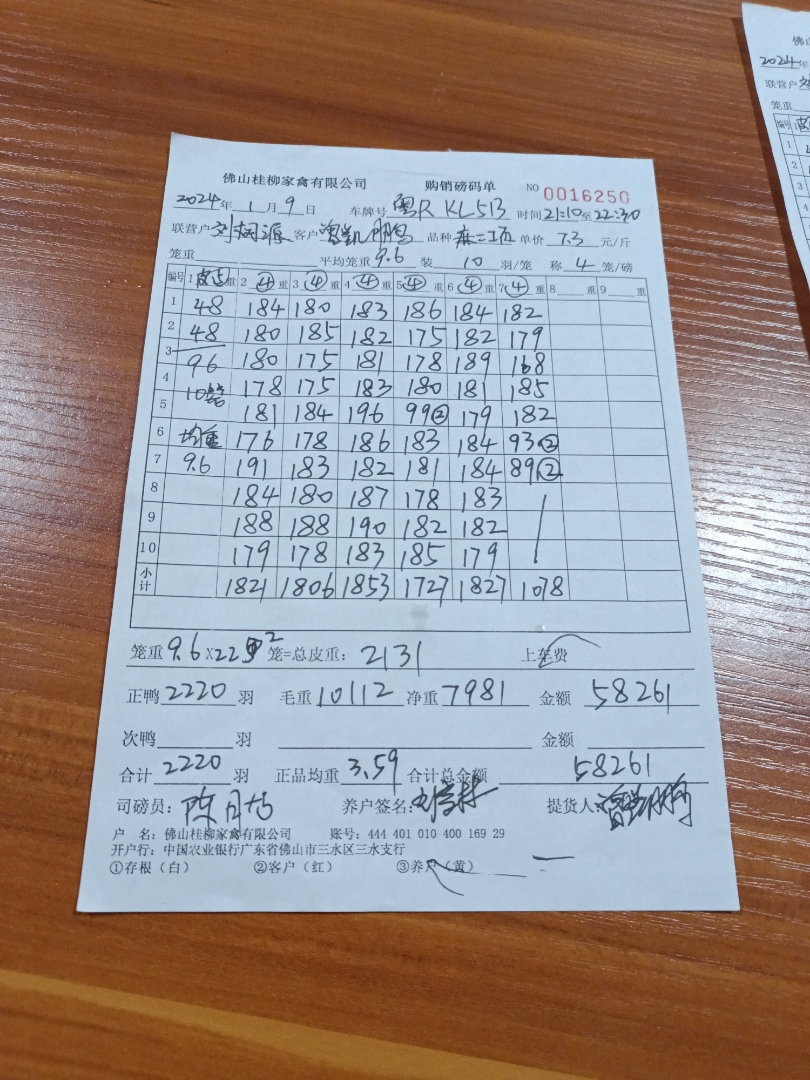 佛山桂柳家禽有限公司 购销磅码单 NO 0016250
2024年 1月 9日 车牌号 粤R KL513 时间 21:10至22:30
联营户 客户 曾凯鹏 品种 麻二 单价 7.3 元/斤
笼重 平均笼重 9.6 装 10 羽/笼 称 4 笼/磅
编号 1 皮 重 2 ④ 重 3 ④ 重 4 ④ 重 5 ④ 重 6 ④ 重 7 ④ 重 8 重 9 重
1 48 184 180 183 186 184 182
2 48 180 185 182 175 182 179
3 96 180 175 181 178 189 168
4 10笼 178 175 183 180 181 185
5 181 184 196 99② 179 182
6 均重 176 178 186 183 184 93②
7 9.6 191 183 182 181 184 89②
8 184 180 187 178 183
9 188 188 190 182 182
10 179 178 183 185 179
小计 1821 1806 1853 1727 1827 1078
笼重 9.6 X 222 笼=总皮重: 2131 上车费
正鸭 2220 羽 毛重 10112 净重 7981 金额 58261
次鸭 羽 金额
合计 2220 羽 正品均重 3.59 合计总金额 58261
司磅员: 养户签名: 提货人: 曾凯鹏
户 名: 佛山桂柳家禽有限公司 账号: 444 401 010 400 169 29
开户行: 中国农业银行广东省佛山市三水区三水支行
①存根(白) ②客户(红) ③养户(黄)
佛山
2024年
联营户
笼重
编号
1
2
3
4
5
6
7